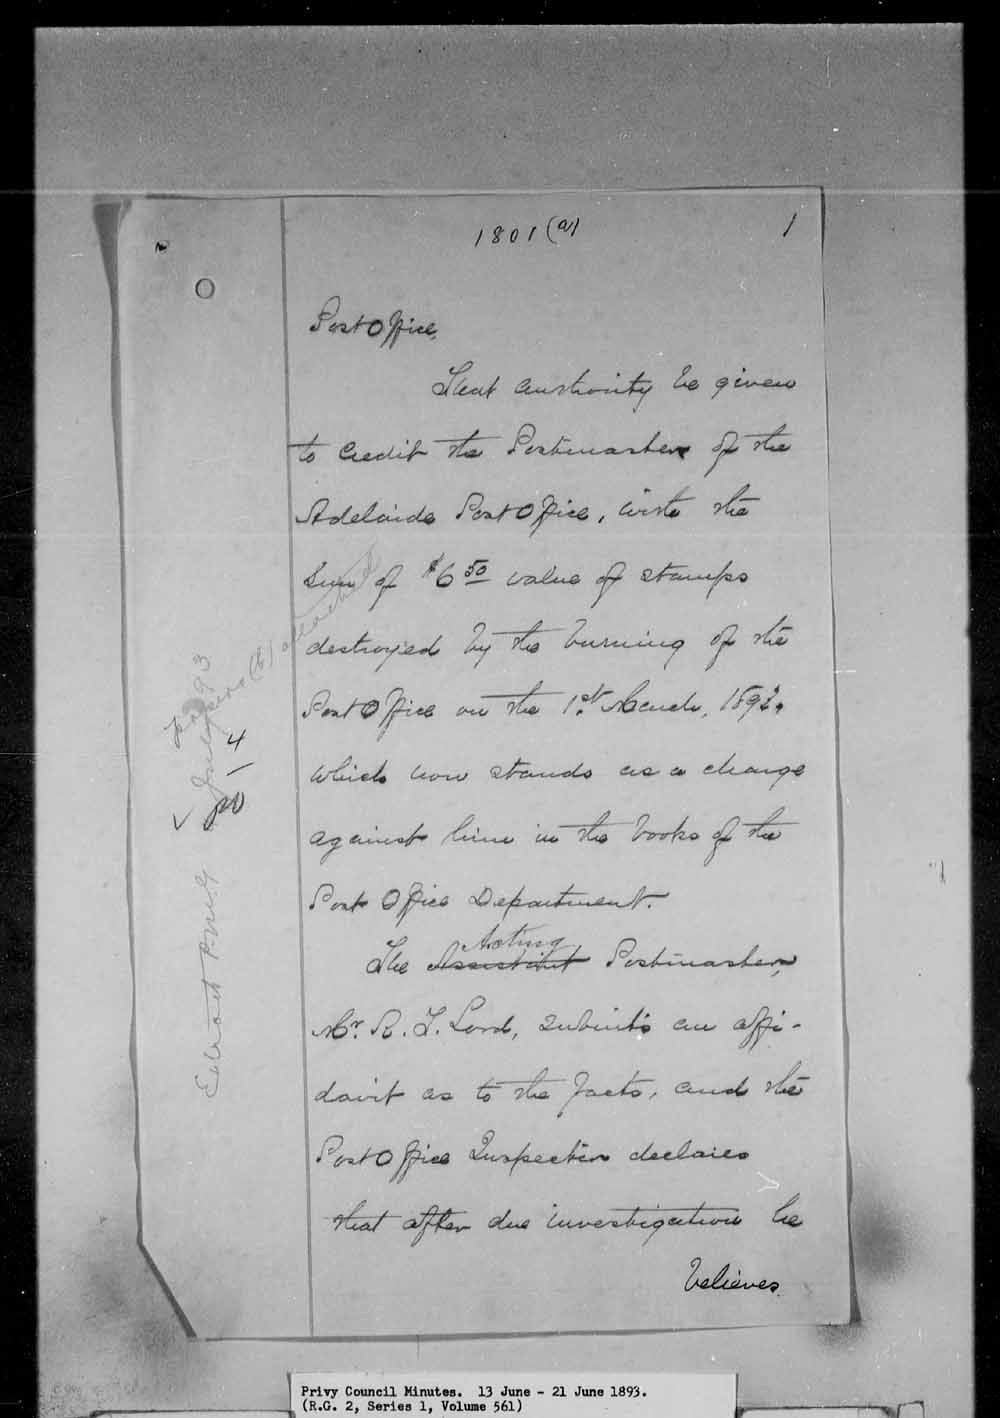 1801(a) 1
Post Office,
That authority be given
to credit the Postmaster of the
Adelaide Post Office, with the
Sum of $6 50 value of stamps
destroyed by the burning of the
Post Office on the 1st. March,
which now stands as a charge
against him in the books of the
Post Office Department.
Acting
The Assistant Postmaster,
Mr. R. T. Lord, submits an affi-
davit as to the facts, and the
Post Office Inspector declares
that after due investigation he
believes.
4
Extract P.M.G
Privy Council Minutes. 13 June - 21 June 1893.
(R.G. 2, Series 1, Volume 561)